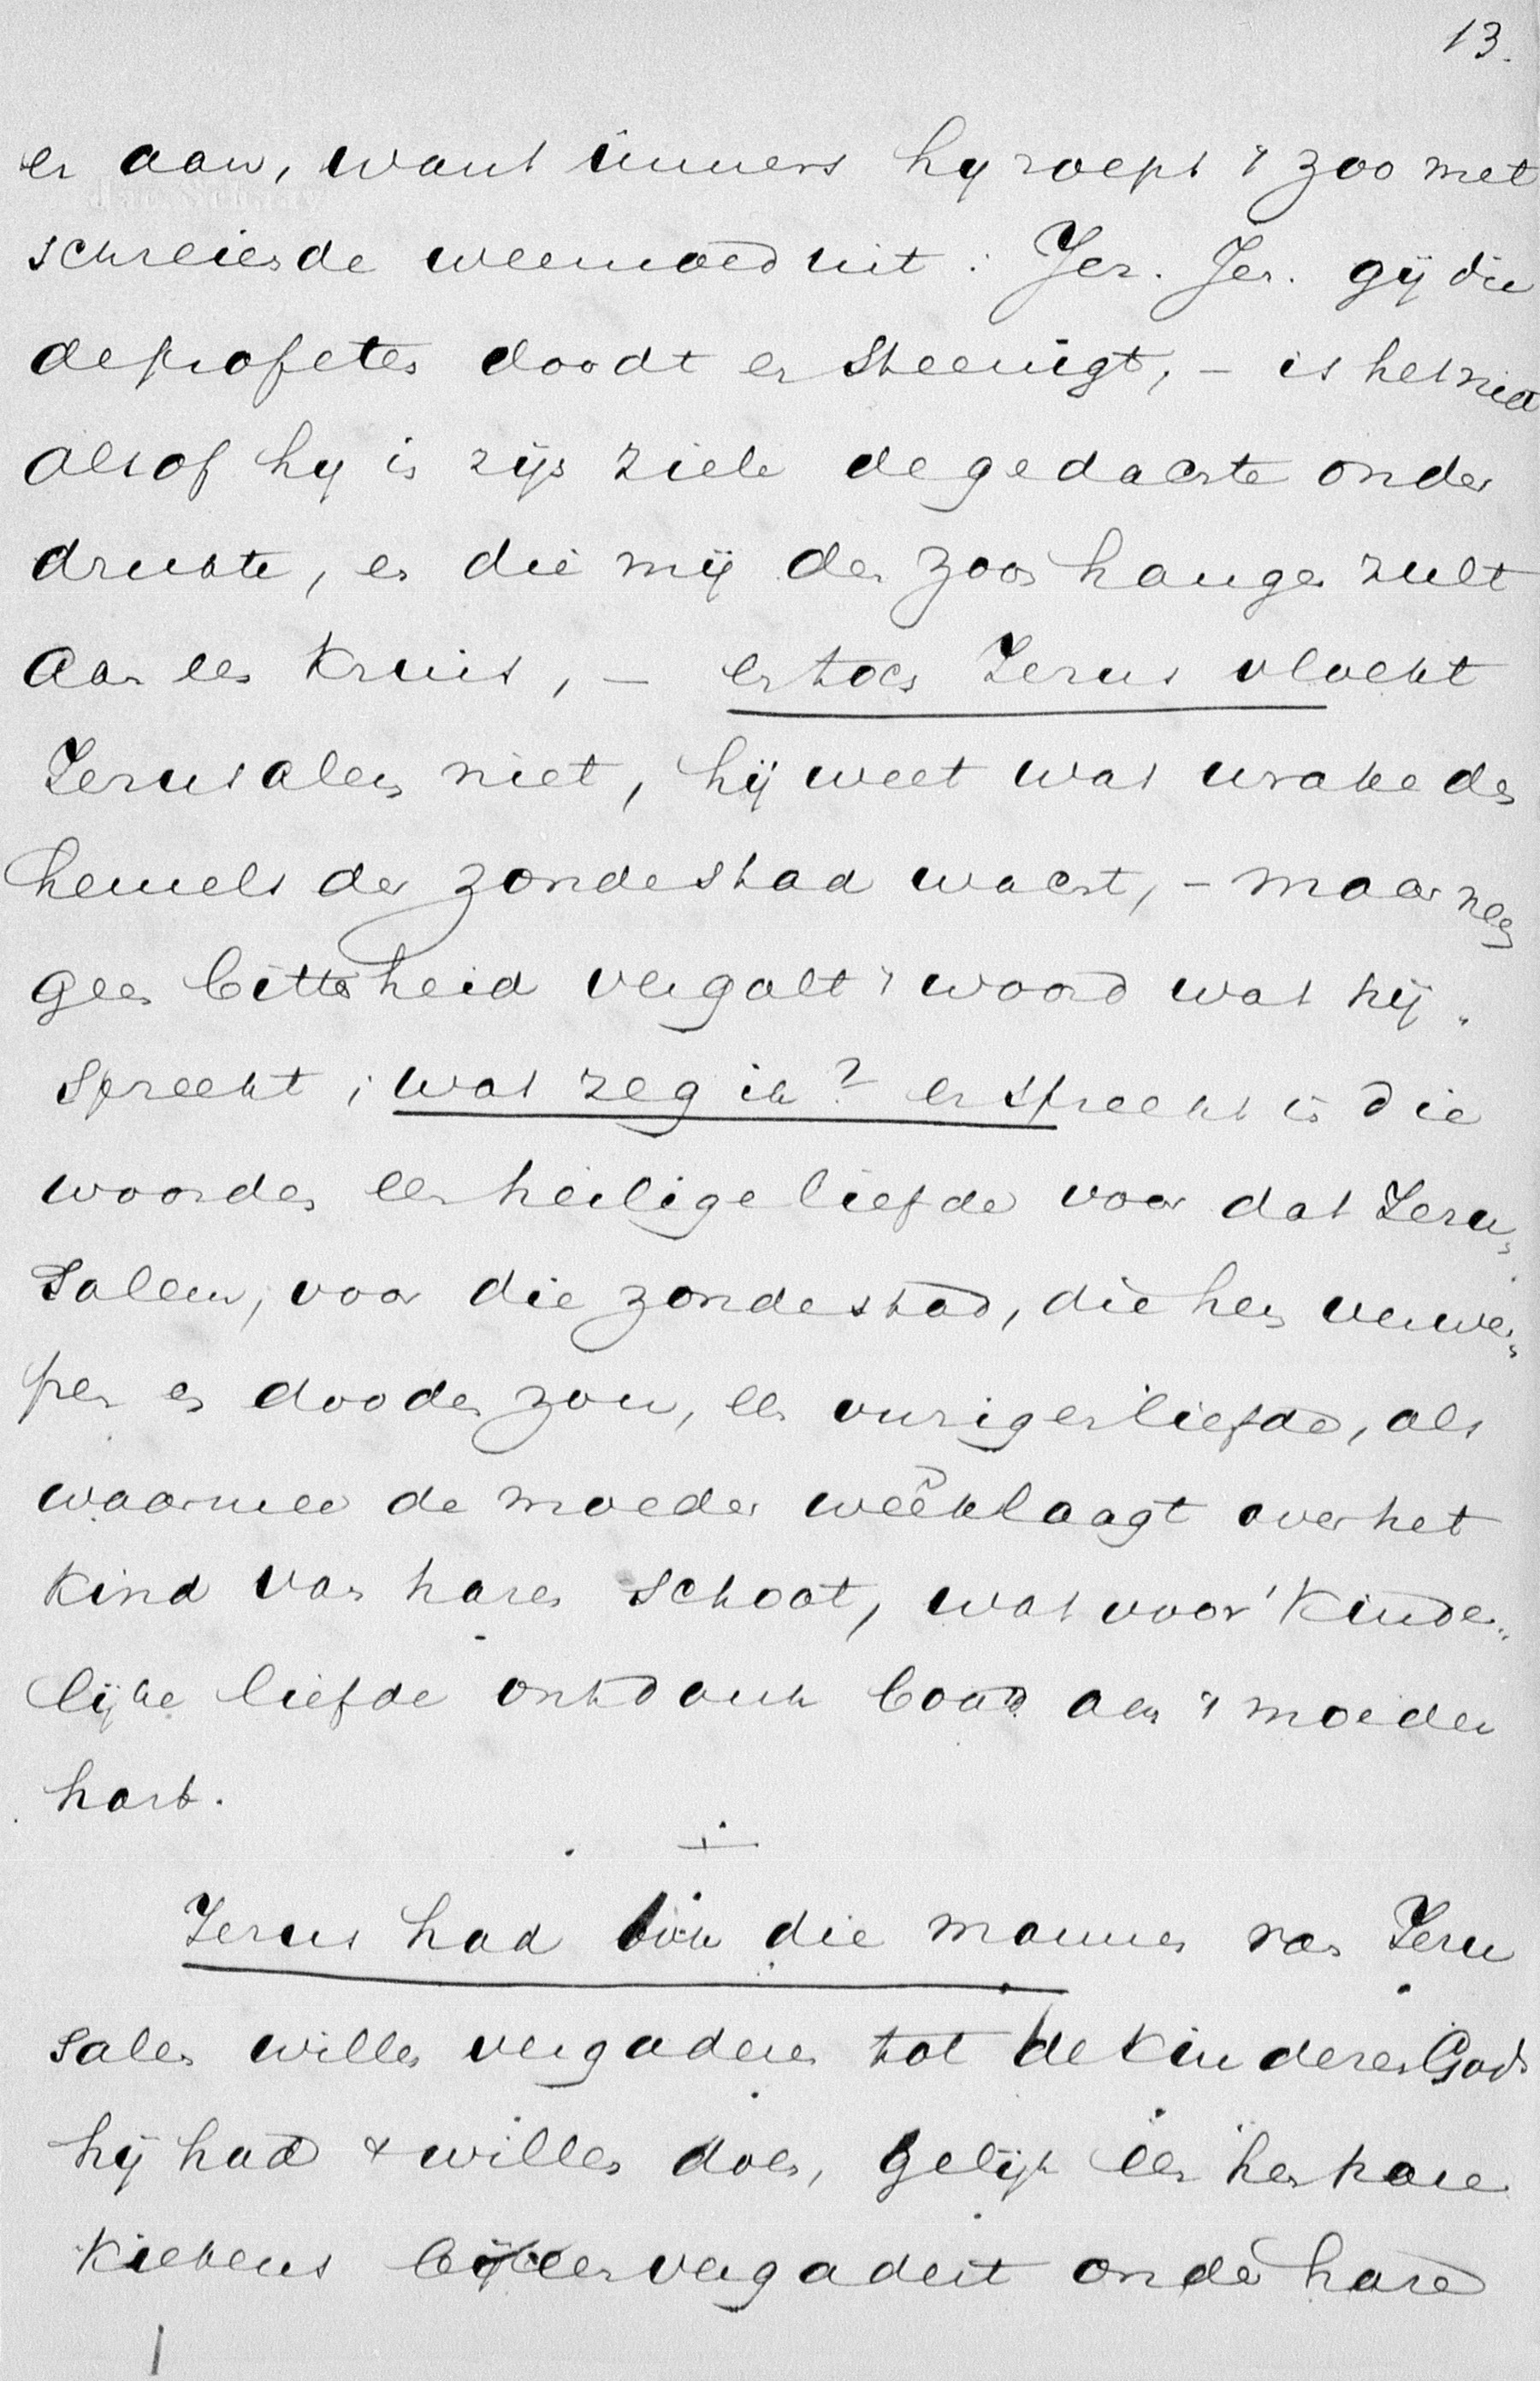 13.
er aan, want immers hy roept 't zoo met
schreiende weemoed uit: Jer. Jer. gij die
de profeten doodt en steenigt, – is het niet
alsof hy in zijn ziele de gedachte onder
drukte, en die mij den zoon hangen zult
aan een kruis, – en toch Jezus vloekt
Jerusalem niet, hij weet wat wrake des
hemels der zondestad wacht, – maar neen
geen bitterheid vergalt 't woord wat hij
spreekt; wat zeg ik? er spreekt in die
woorden een heilige liefde voor dat Jeru„
salem, voor die zondestad, die hem verwer„
pen en dooden zou, een vuriger liefde, als
waarmee de moeder weeklaagt over het
kind van haren schoot, wat voor kinde„
lijke liefde ondank bood aan 't moeder
hart.
Jezus had ook die mannen van Jeru
salem willen vergaderen tot de kinderen Gods
hij had 't willen doen, gelijk een hen hare
kiekens bijeenvergadert onder hare